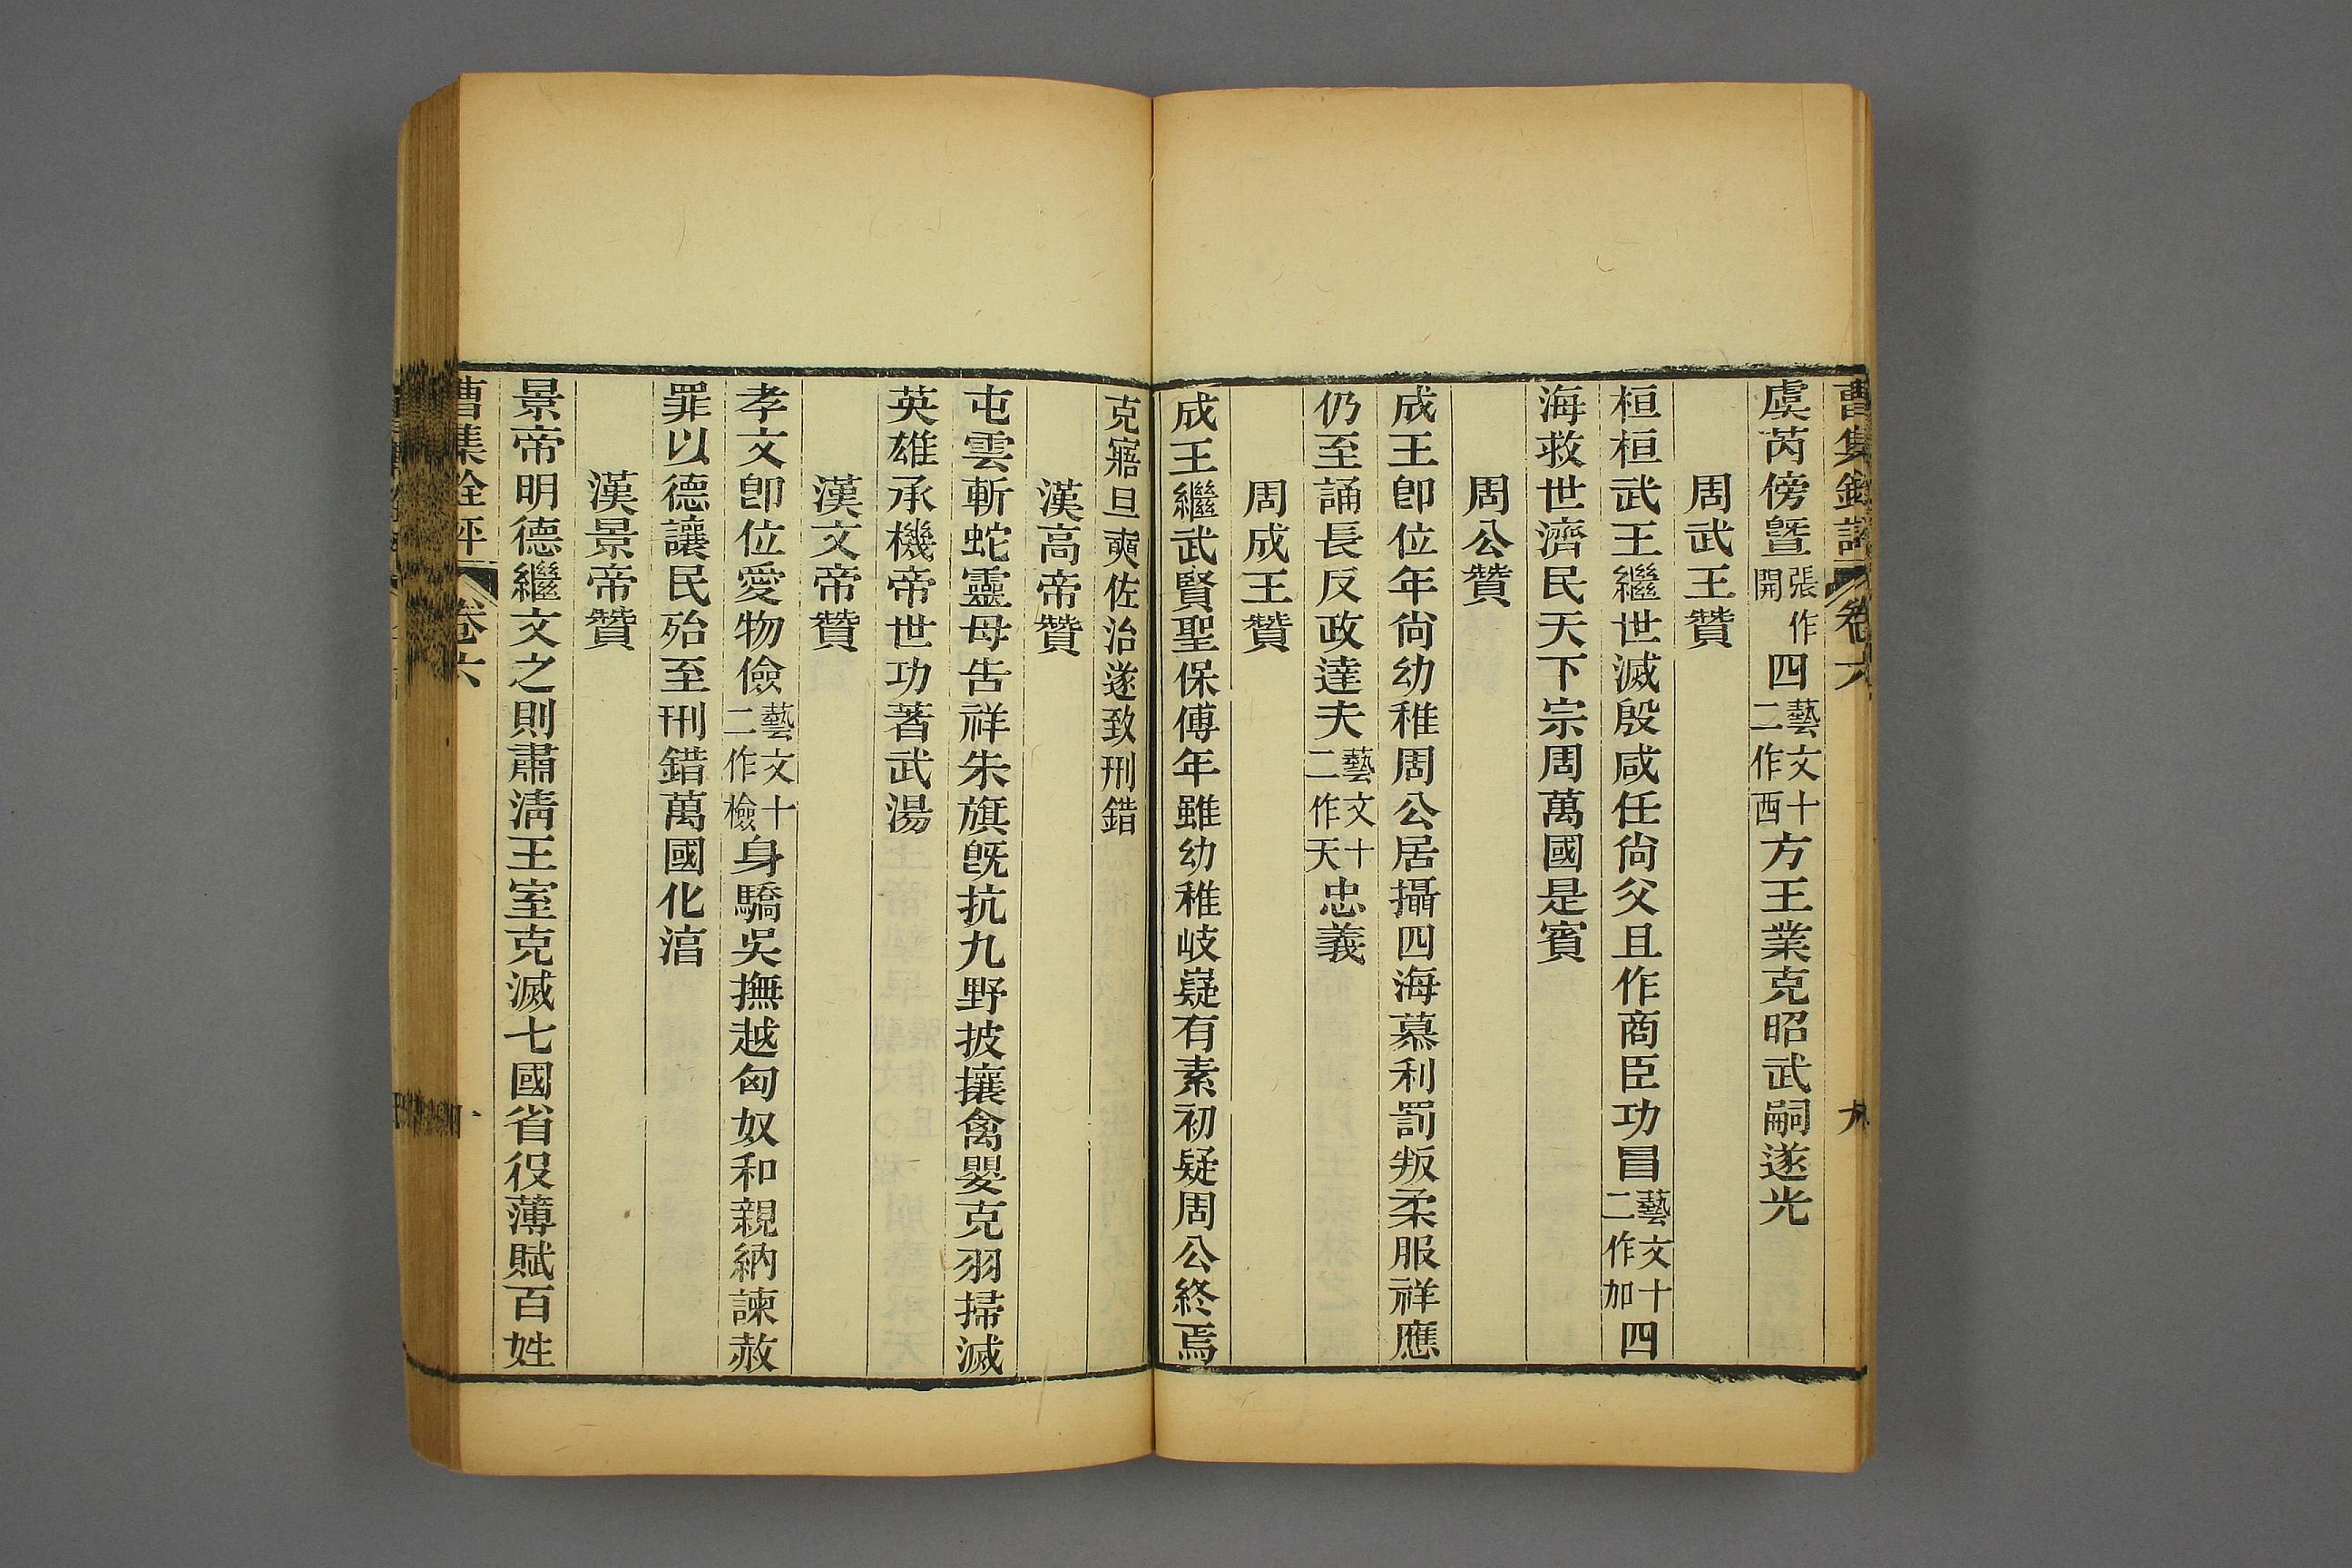 曹集銓評 卷六 九
虞芮傍曁張作開四藝文十二作西方王業克昭武嗣遂光
周武王贊
桓桓武王繼世滅殷咸任尙父且作商臣功冒藝文十二作加四
海救世濟民天下宗周萬國是賓
周公贊
成王卽位年尙幼稚周公居攝四海慕利罰叛柔服祥應
仍至誦長反政達夫藝文十二作天忠義
周成王贊
成王繼武賢聖保傅年雖幼稚岐嶷有素初疑周公終焉
克寤旦奭佐治遂致刑錯
漢高帝贊
屯雲斬蛇靈母告祥朱旗旣抗九野披攘禽嬰克羽掃滅
英雄承機帝世功著武湯
漢文帝贊
孝文卽位愛物儉藝文十二作檢身驕吳撫越匈奴和親納諫赦
罪以德讓民殆至刑錯萬國化淳
漢景帝贊
景帝明德繼文之則肅淸王室克滅七國省役薄賦百姓
曹集銓評 卷六